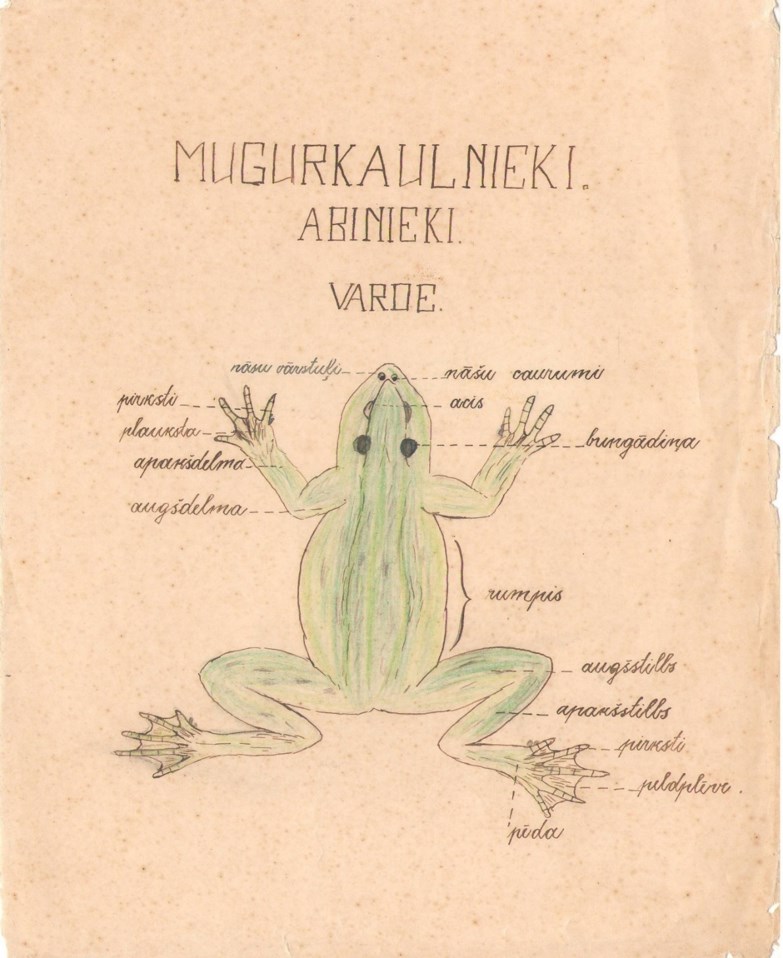 MUGURKAULNIEKI.
ABINIEKI.
VARDE.
nāsu vārstuļi
nāšu caurumi
pirksti
acis
plauksta
bungādiņa
apakšdelma
augšdelma
rumpis
augšstilbs
apakšstilbs
pirksti
peldplēve.
pēda